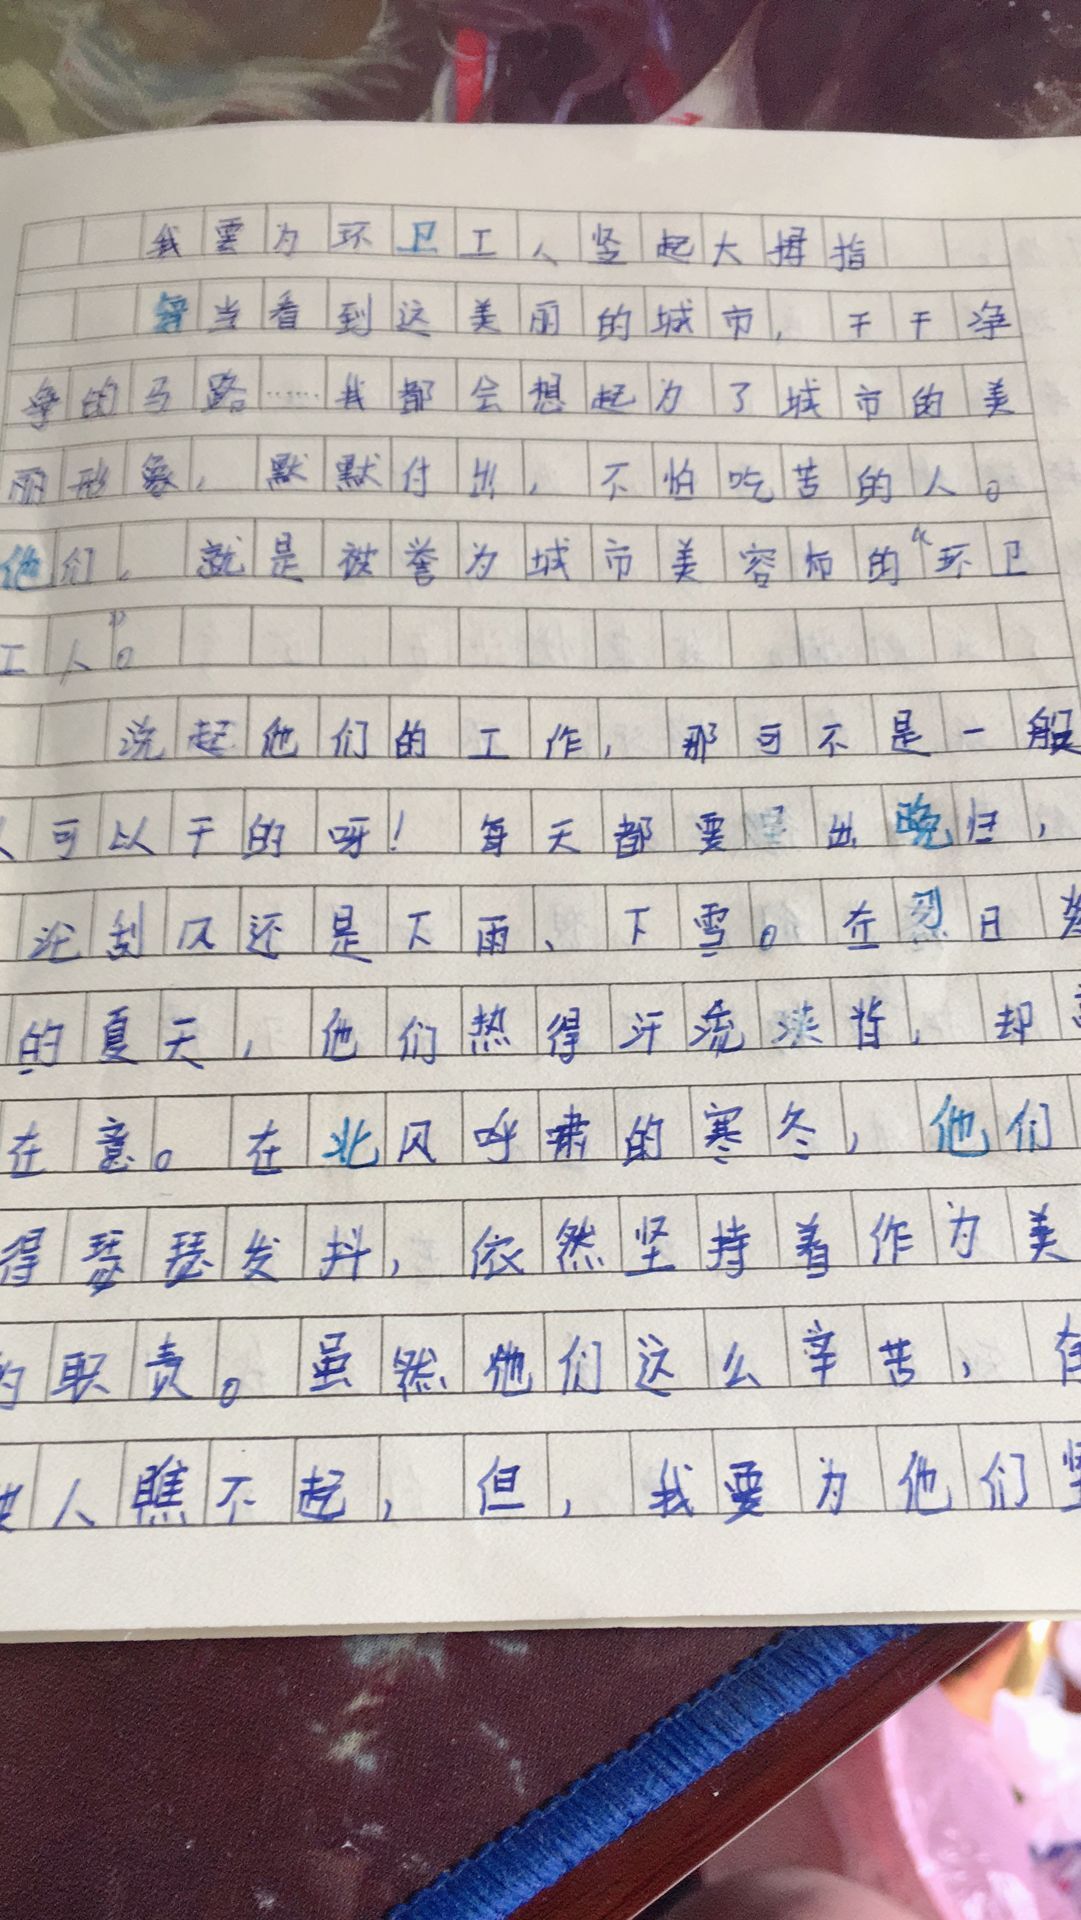 我要为环卫工人竖起大拇指
每当看到这美丽的城市，干干净
净的马路……我都会想起为了城市的美
丽形象，默默付出，不怕吃苦的人。
他们，就是被誉为城市美容师的“环卫
工人”。
说起他们的工作，那可不是一般
人可以干的呀！每天都要早出晚归，
论刮风还是下雨、下雪。在烈日
的夏天，他们热得汗流浃背，却
在意。在北风呼肃的寒冬，他们
得瑟瑟发抖，依然坚持着作为美
的职责。虽然他们这么辛苦，有
被人瞧不起，但，我要为他们竖